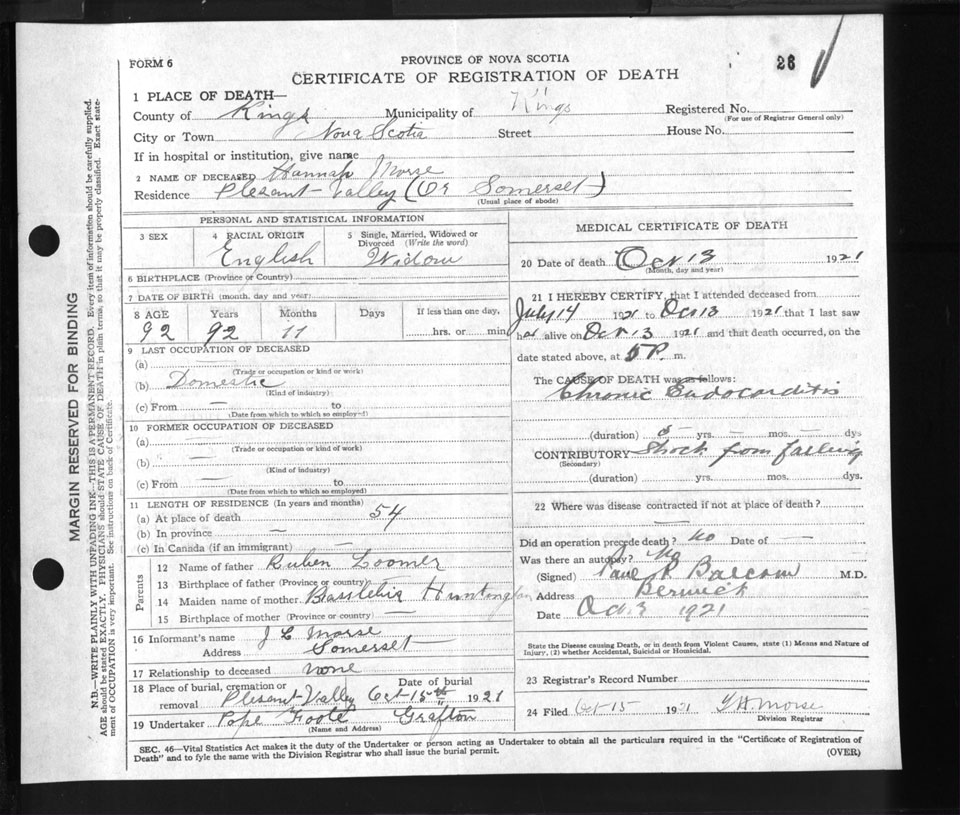 FORM 6
PROVINCE OF NOVA SCOTIA
26
CERTIFICATE OF REGISTRATION OF DEATH
1 PLACE OF DEATH—
County of Kings Municipality of Kings Registered No.
(For use of Registrar General only)
City or Town Nova Scotia Street House No.
If in hospital or institution, give name
2 NAME OF DECEASED Hannah Morse
Residence Plesant-Valley (Or Somerset)
(Usual place of abode)
PERSONAL AND STATISTICAL INFORMATION
3 SEX 4 RACIAL ORIGIN 5 Single, Married, Widowed or Divorced (Write the word)
English Widow
6 BIRTHPLACE (Province or Country)
7 DATE OF BIRTH (month, day and year)
8 AGE Years Months Days If less than one day,
92 92 11 hrs. or min.
9 LAST OCCUPATION OF DECEASED
(a) —
(Trade or occupation or kind or work)
(b) Domestic
(Kind of industry)
(c) From — to
(Date from which to which so employed)
10 FORMER OCCUPATION OF DECEASED
(a) —
(Trade or occupation or kind of work)
(b) —
(Kind of industry)
(c) From — to
(Date from which to which so employed)
11 LENGTH OF RESIDENCE (In years and months)
(a) At place of death 54
(b) In province —
(c) In Canada (if an immigrant) —
Parents
12 Name of father Ruben Loomer
13 Birthplace of father (Province or country)
14 Maiden name of mother Huntington
15 Birthplace of mother (Province or country) —
16 Informant's name J L Morse
Address Somerset
17 Relationship to deceased none
18 Place of burial, cremation or removal Plesant Valley Date of burial Oct 15th 1921
19 Undertaker Pope Foote Grafton
(Name and Address)
MEDICAL CERTIFICATE OF DEATH
20 Date of death Oct 13 1921
(Month, day and year)
21 I HEREBY CERTIFY, that I attended deceased from
July 14 1921 to Oct 13 1921 that I last saw
h alive on Oct 13 1921 and that death occurred, on
date stated above, at 5 P. m.
The CAUSE OF DEATH was as follows:
Chronic Endocarditis
(duration) yrs. — mos. — dys
CONTRIBUTORY Shock from falling
(Secondary)
(duration) yrs. mos. dys.
22 Where was disease contracted if not at place of death?
—
Did an operation precede death? No Date of —
Was there an autopsy? No
(Signed) Balcom M.D.
Address Berwick
Date Oct 3 1921
State the Disease causing Death, or in death from Violent Causes, state (1) Means and Nature of
Injury, (2) whether Accidental, Suicidal or Homicidal.
23 Registrar's Record Number
24 Filed Oct-15 1921 Morse
Division Registrar
SEC. 46—Vital Statistics Act makes it the duty of the Undertaker or person acting as Undertaker to obtain all the particulars required in the "Certificate of Registration of
Death" and to fyle the same with the Division Registrar who shall issue the burial permit.
(OVER)
MARGIN RESERVED FOR BINDING
N.B.—WRITE PLAINLY WITH UNFADING INK—THIS IS A PERMANENT RECORD. Every item of information should be carefully supplied.
AGE should be stated EXACTLY. PHYSICIANS should STATE CAUSE OF DEATH in plain terms, so that it may be properly classified. Exact state-
ment of OCCUPATION is very important. See instructions on back of Certificate.